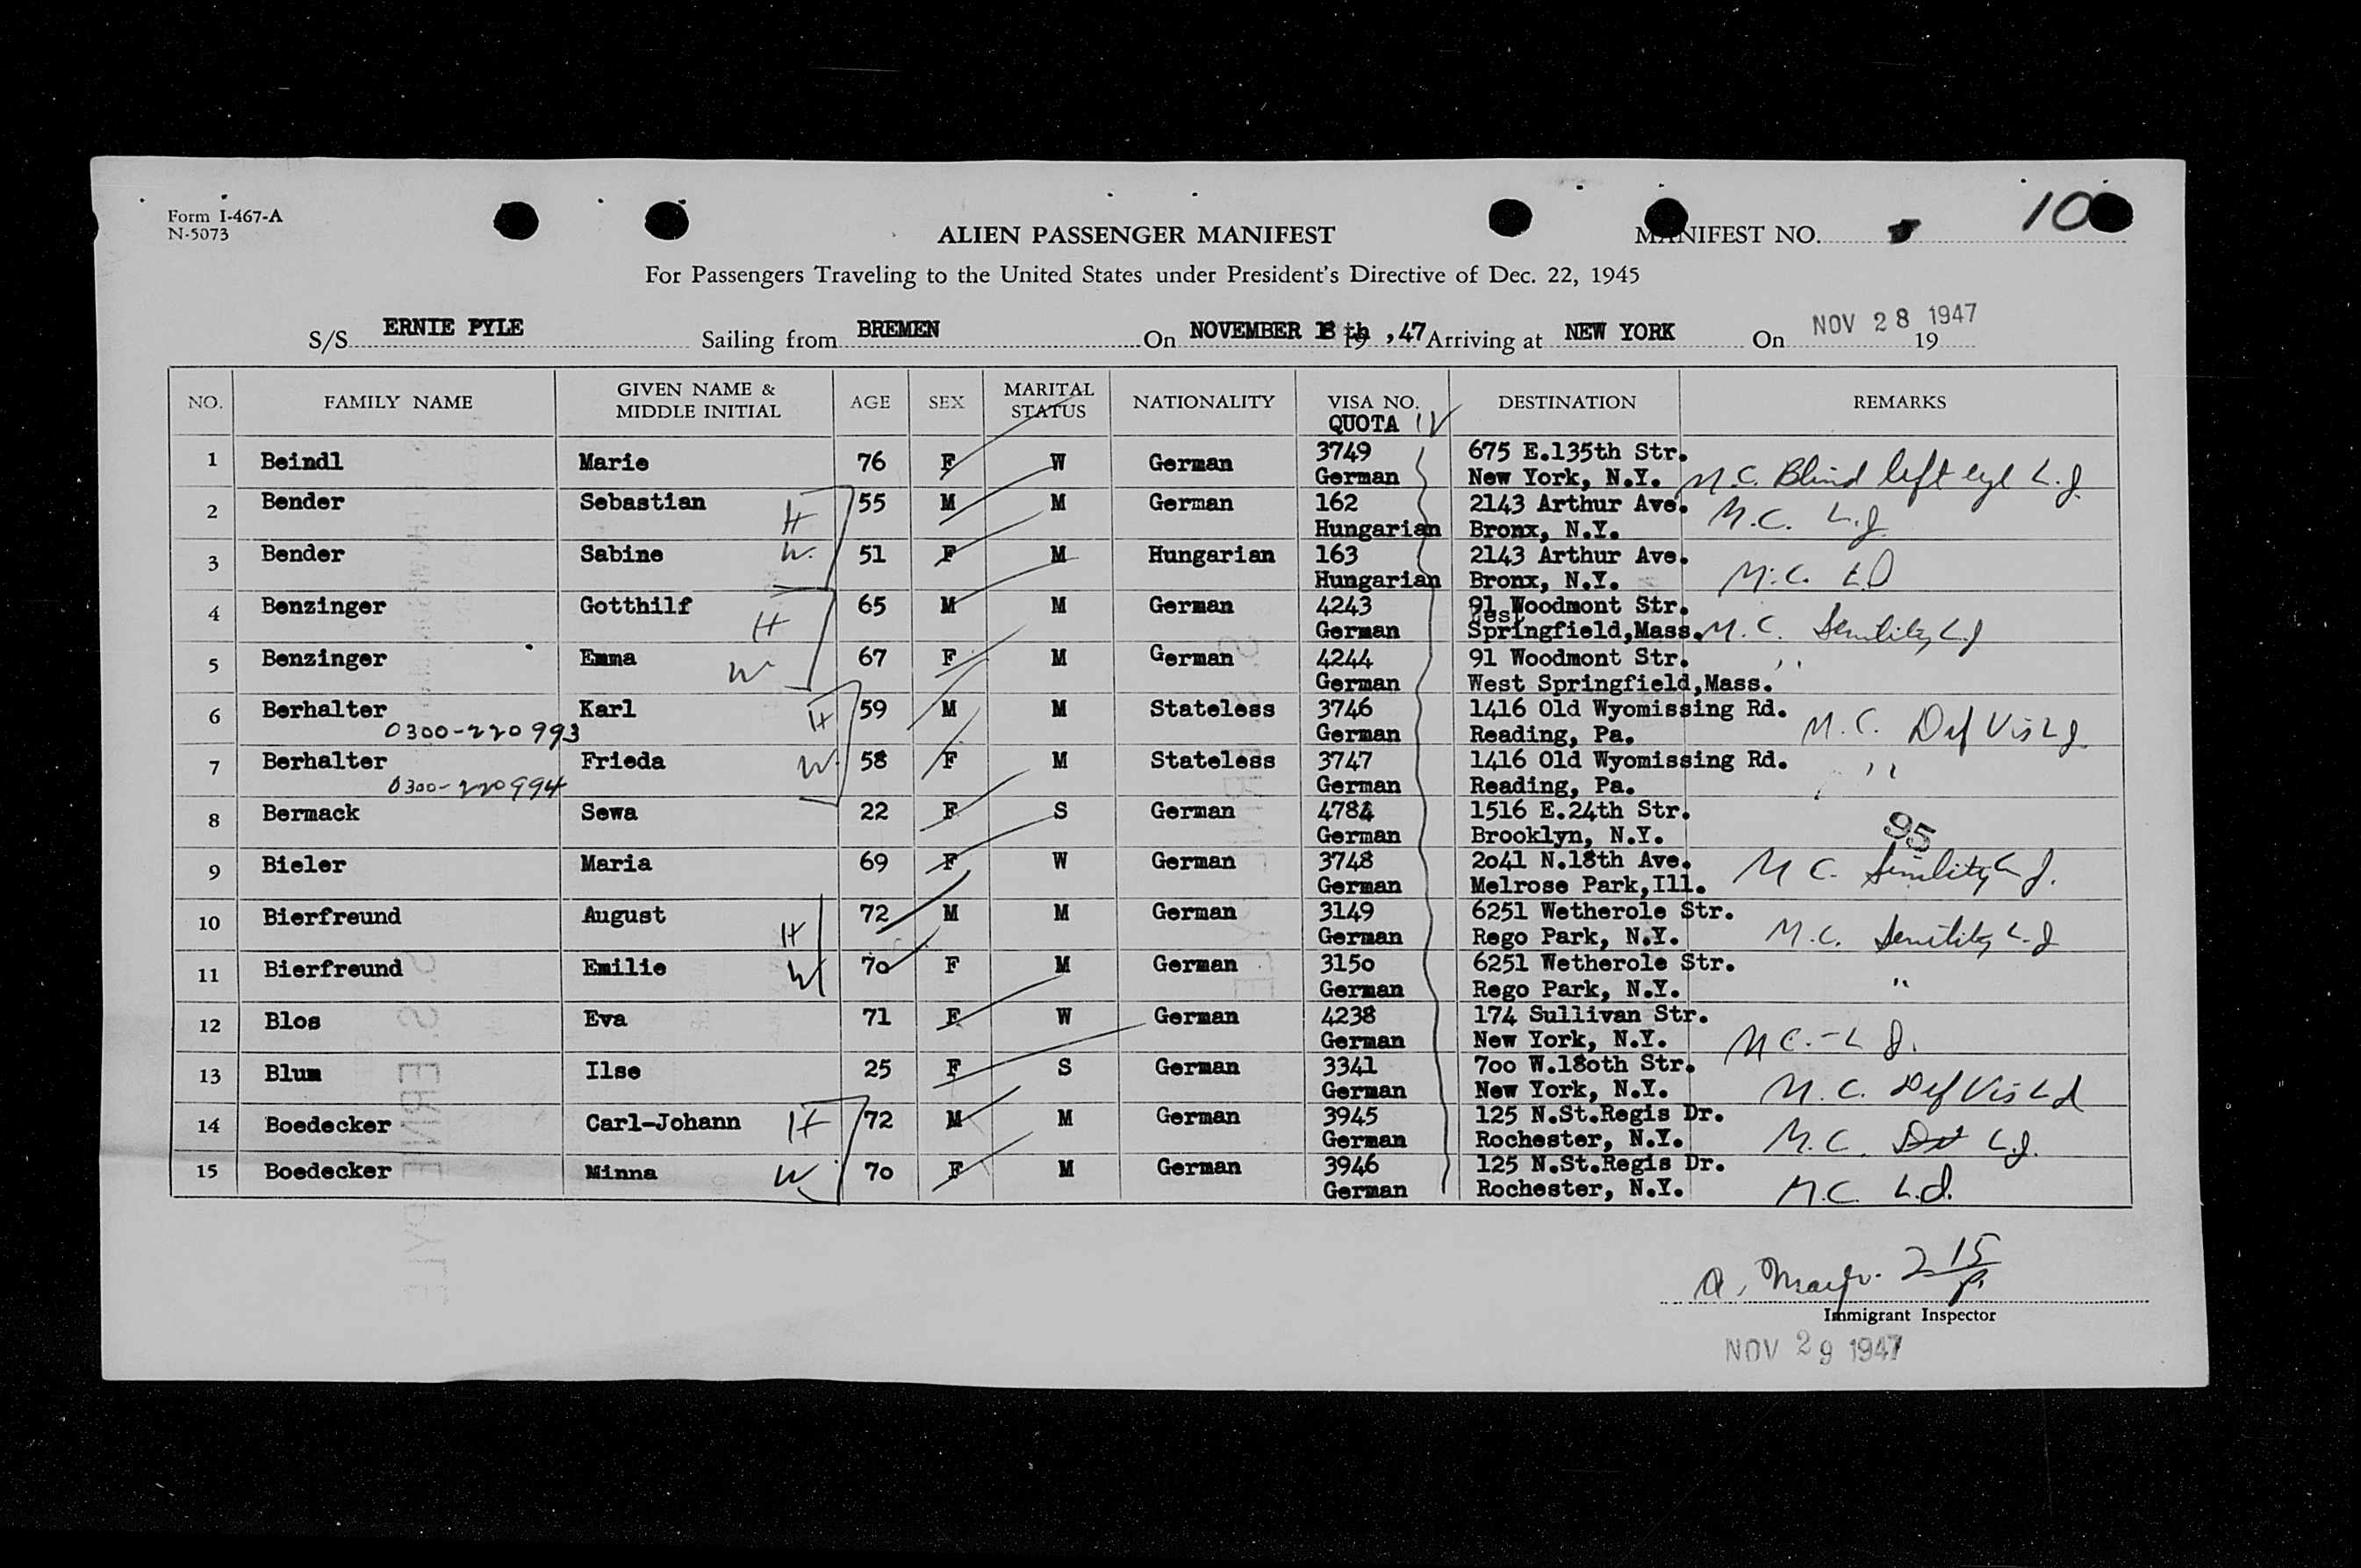 Form I-467-A
N-5073
10
ALIEN PASSENGER MANIFEST
MANIFEST NO.
For Passengers Traveling to the United States under President's Directive of Dec. 22, 1945
S/S ERNIE PYLE Sailing from BREMEN On NOVEMBER 18th ,47 Arriving at NEW YORK On NOV 28 1947 19
NO. FAMILY NAME GIVEN NAME & MIDDLE INITIAL AGE SEX MARITAL STATUS NATIONALITY VISA NO. QUOTA IV DESTINATION REMARKS
1 Beindl Marie 76 F W German 3749 675 E.135th Str.
German New York, N.Y. M.C. Blind left eye L.J.
2 Bender Sebastian H 55 M M German 162 2143 Arthur Ave. M.C. L.J.
Hungarian Bronx, N.Y.
3 Bender Sabine W. 51 F M Hungarian 163 2143 Arthur Ave.
Hungarian Bronx, N.Y. M.C. L.D
4 Benzinger Gotthilf H 65 M M German 4243 91 Woodmont Str.
German West Springfield,Mass. M.C. Senility L.J
5 Benzinger Emma W 67 F M German 4244 91 Woodmont Str. ''
German West Springfield,Mass.
6 Berhalter Karl H 59 M M Stateless 3746 1416 Old Wyomissing Rd.
0300-220993 German Reading, Pa. M.C. Def Vis L J.
7 Berhalter Frieda W. 58 F M Stateless 3747 1416 Old Wyomissing Rd. ''
0300-220994 German Reading, Pa.
8 Bermack Sewa 22 F S German 4784 1516 E.24th Str.
German Brooklyn, N.Y. 95
9 Bieler Maria 69 F W German 3748 2o41 N.18th Ave. M C. Senility L J.
German Melrose Park,Ill.
10 Bierfreund August H 72 M M German 3149 6251 Wetherole Str.
German Rego Park, N.Y. M.C. Senility L.J
11 Bierfreund Emilie W 7o F M German 315o 6251 Wetherole Str.
German Rego Park, N.Y. "
12 Blos Eva 71 F W German 4238 174 Sullivan Str.
German New York, N.Y. M C.-L J.
13 Blum Ilse 25 F S German 3341 7oo W.18oth Str.
German New York, N.Y. M.C. Def Vis L d
14 Boedecker Carl-Johann H 72 M M German 3945 125 N.St.Regis Dr.
German Rochester, N.Y. M.C. L.J.
15 Boedecker Minna W 7o F M German 3946 125 N.St.Regis Dr.
German Rochester, N.Y. M.C. L.d.
A. 2 15
Immigrant Inspector
NOV 29 1947